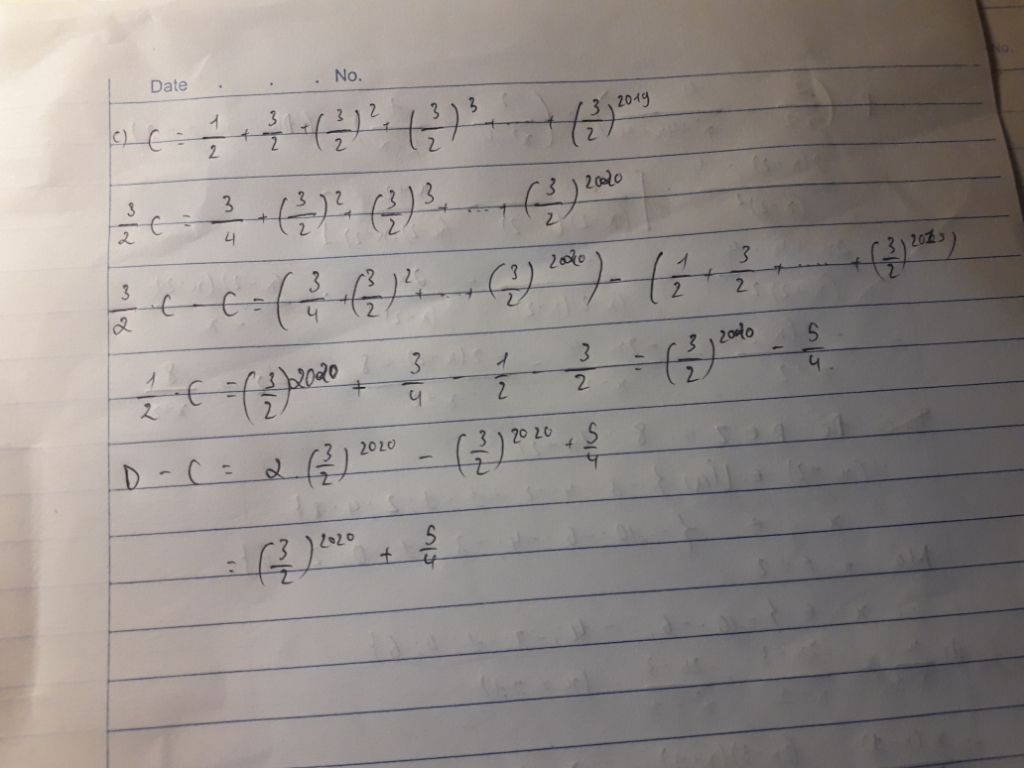 Date . . . No.
c) C = 1/2 + 3/2 + (3/2)^2 + (3/2)^3 + ... + (3/2)^2019
3/2 C = 3/4 + (3/2)^2 + (3/2)^3 + ... + (3/2)^2020
3/2 . C - C = (3/4 + (3/2)^2 + ... + (3/2)^2020) - (1/2 + 3/2 + ..... + (3/2)^2019)
1/2 . C = (3/2)^2020 + 3/4 - 1/2 - 3/2 = (3/2)^2020 - 5/4.
D - C = 2 (3/2)^2020 - (3/2)^2020 + 5/4
= (3/2)^2020 + 5/4